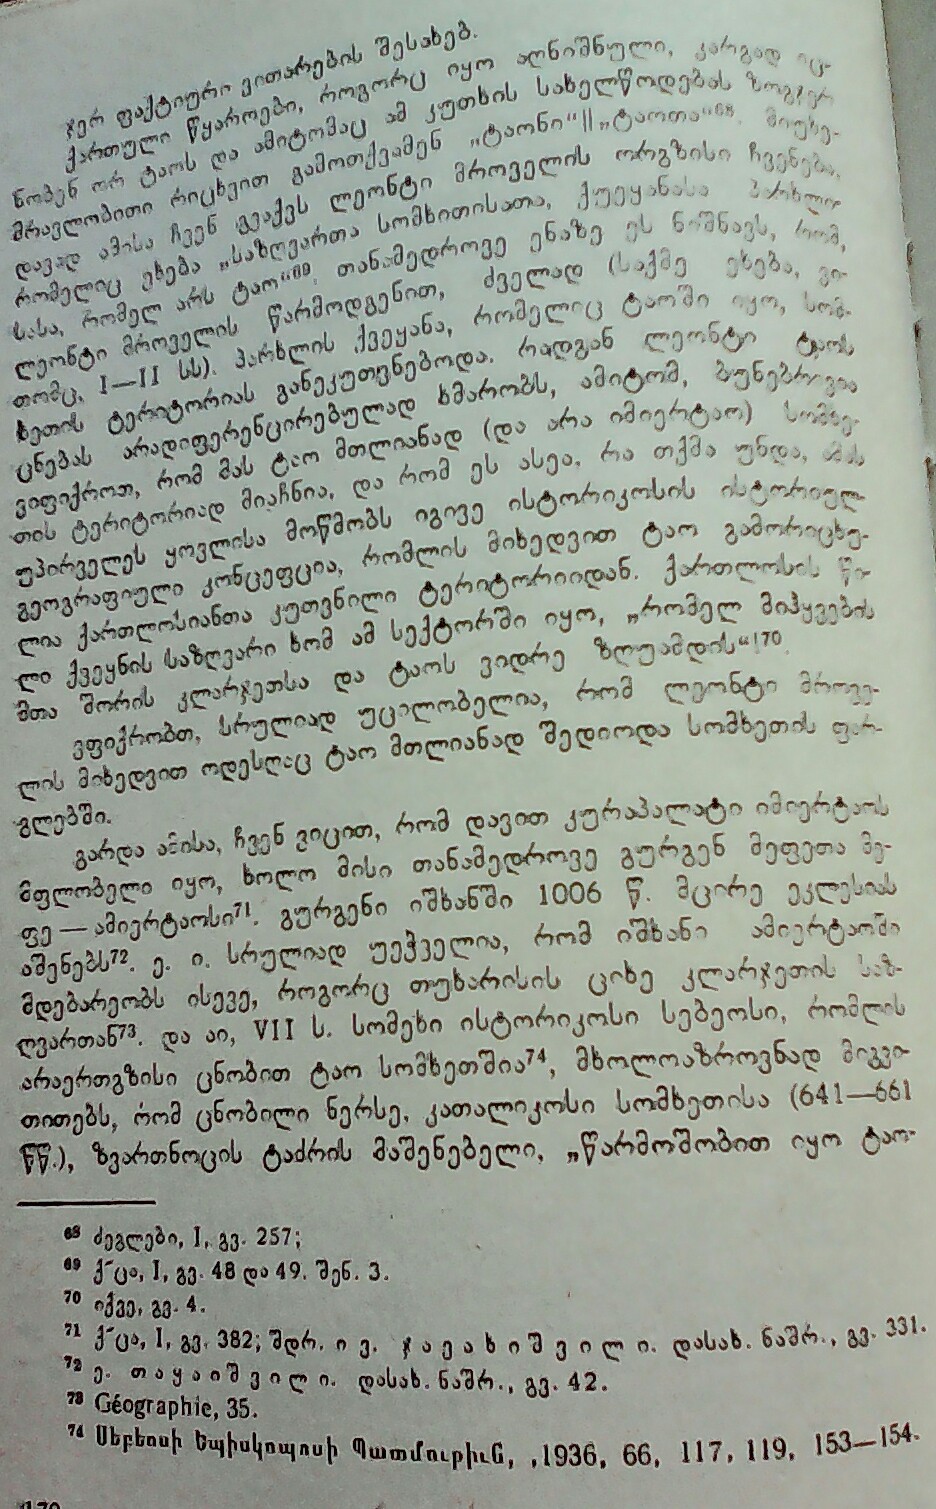 ჯერ ფაქტიური ვითარების შესახებ.
ქართული წყაროები, როგორც იყო აღნიშნული, კარგად იც-
ნობენ ორ ტაოს და ამიტომაც ამ კუთხის სახელწოდებას ზოგჯერ
მრავლობითი რიცხვით გამოთქვამენ „ტაონი“ || „ტაოთა“⁶⁸. მიუხე-
დავად ამისა ჩვენ გვაქვს ლეონტი მროველის ორგზისი ჩვენება,
რომელიც ეხება „საზღვართა სომხითისათა, ქუეყანასა პარხლი-
სასა, რომელ არს ტაო“⁶⁹. თანამედროვე ენაზე ეს ნიშნავს, რომ,
ლეონტი მროველის წარმოდგენით, ძველად (საქმე ეხება, ვი-
თომც, I—II სს). პარხლის ქვეყანა, რომელიც ტაოში იყო, სომ-
ხეთის ტერიტორიას განეკუთვნებოდა. რადგან ლეონტი ტაოს
ცნებას არადიფერენცირებულად ხმარობს, ამიტომ, ბუნებრივია
ვიფიქროთ, რომ მას ტაო მთლიანად (და არა იმიერტაო) სომხე-
თის ტერიტორიად მიაჩნია, და რომ ეს ასეა, რა თქმა უნდა, ამას
უპირველეს ყოვლისა მოწმობს იგივე ისტორიკოსის ისტორიულ-
გეოგრაფიული კონცეფცია, რომლის მიხედვით ტაო გამორიცხუ-
ლია ქართლოსიანთა კუთვნილი ტერიტორიიდან. ქართლოსის წი-
ლი ქვეყნის საზღვარი ხომ ამ სექტორში იყო, „რომელ მიჰყვების
მთა შორის კლარჯეთსა და ტაოს ვიდრე ზღუამდის“⁷⁰.
ვფიქრობთ, სრულიად უცილობელია, რომ ლეონტი მროვე-
ლის მიხედვით ოდესღაც ტაო მთლიანად შედიოდა სომხეთის ფარ-
გლებში.
გარდა ამისა, ჩვენ ვიცით, რომ დავით კურაპალატი იმიერტაოს
მფლობელი იყო, ხოლო მისი თანამედროვე გურგენ მეფეთა მე-
ფე — ამიერტაოსი⁷¹. გურგენი იშხანში 1006 წ. მცირე ეკლესიას
აშენებს⁷². ე. ი. სრულიად უეჭველია, რომ იშხანი ამიერტაოში
მდებარეობს ისევე, როგორც თუხარისის ციხე კლარჯეთის საზ-
ღვართან⁷³. და აი, VII ს. სომეხი ისტორიკოსი სებეოსი, რომლის
არაერთგზისი ცნობით ტაო სომხეთშია⁷⁴, მხოლოაზროვნად მიგვი-
თითებს, რომ ცნობილი ნერსე, კათალიკოსი სომხეთისა (641—661
წწ.), ზვართნოცის ტაძრის მაშენებელი, „წარმოშობით იყო ტაო-
⁶⁸ ძეგლები, I, გვ. 257;
⁶⁹ ქ˜ცა, I, გვ. 48 და 49. შენ. 3.
⁷⁰ იქვე, გვ. 4.
⁷¹ ქ˜ცა, I, გვ. 382; შდრ. ი ვ. ჯ ა ვ ა ხ ი შ ვ ი ლ ი. დასახ. ნაშრ., გვ. 331.
⁷² ე. თ ა ყ ა ი შ ვ ი ლ ი. დასახ. ნაშრ., გვ. 42.
⁷³ Géographie, 35.
⁷⁴ Սեբեոսի Եպիսկոպոսի Պատմութիւն, ,1936, 66, 117, 119, 153—154.